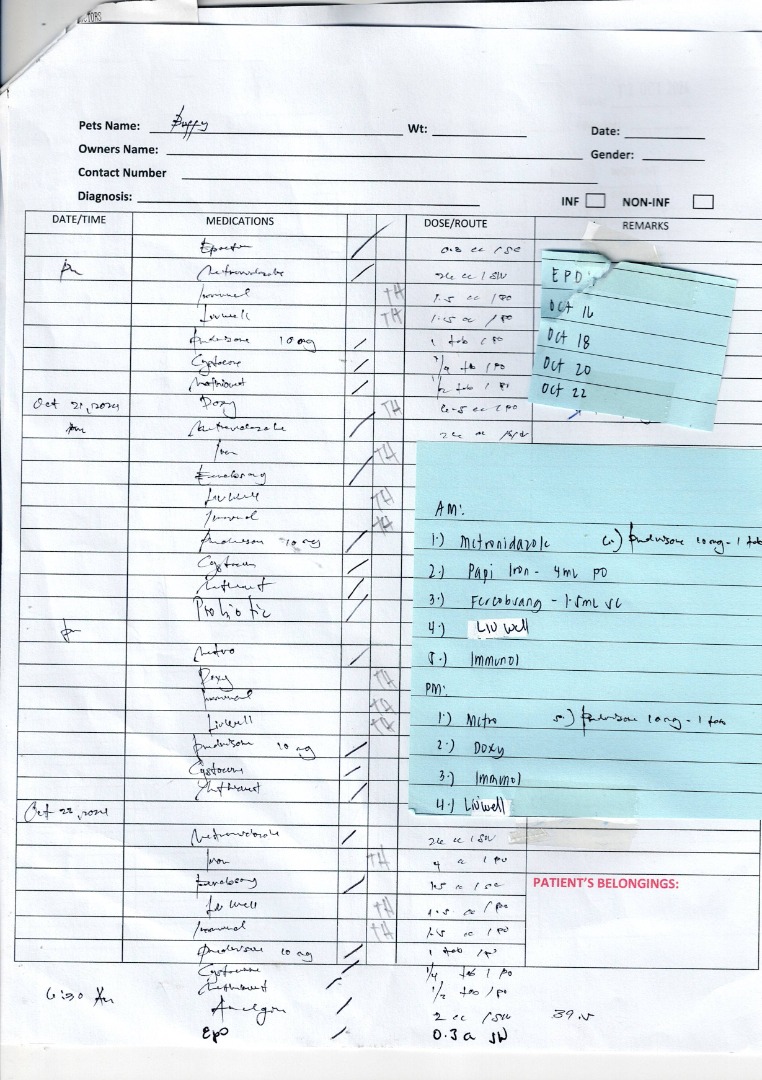 Pets Name: Buffy Wt: Date:
Owners Name: Gender:
Contact Number
Diagnosis: INF NON-INF
DATE/TIME MEDICATIONS DOSE/ROUTE REMARKS
0.3 cc / SC
Pm Metronidazole 26 cc / SIV
Immunol TH 1.5 cc / PO
Livwell TH 1.5 cc / PO
Prednisone 10 mg 1 tab / PO
1/4 tab / PO
1/2 tab / PO
Oct 21, 2024 Doxy TH 6.5 cc / PO
Am Metronidazole 26 cc
Iron TH
Livwell TH
Immunol TH
Prednisone 10 mg
Probiotic
Pm
Metro
Doxy TH
Immunol TH
Livwell TH
Prednisone 10 mg
Oct 22, 2024
Metronidazole 26 cc / SIV
Iron TH 4 cc / PO
1.5 cc / SC
Livwell TH 1.5 cc / PO
Immunol TH 1.5 cc / PO
Prednisone 10 mg 1 tab / PO
1/4 tab / PO
6:30 Am 1/2 tab / PO
2 cc / SIV 39.5
EPO 0.3 cc
EPO:
Oct 16
Oct 18
Oct 20
Oct 22
AM:
1.) Metronidazole 6.) Prednisone 10mg - 1 tab
2.) Papi Iron - 4mL PO
3.) Fercobsang - 1.5mL SC
4.) Liv well
5.) Immunol
PM:
1.) Metro 5.) Prednisone 10mg - 1 tab
2.) Doxy
3.) Immunol
4.) Livwell
PATIENT'S BELONGINGS: